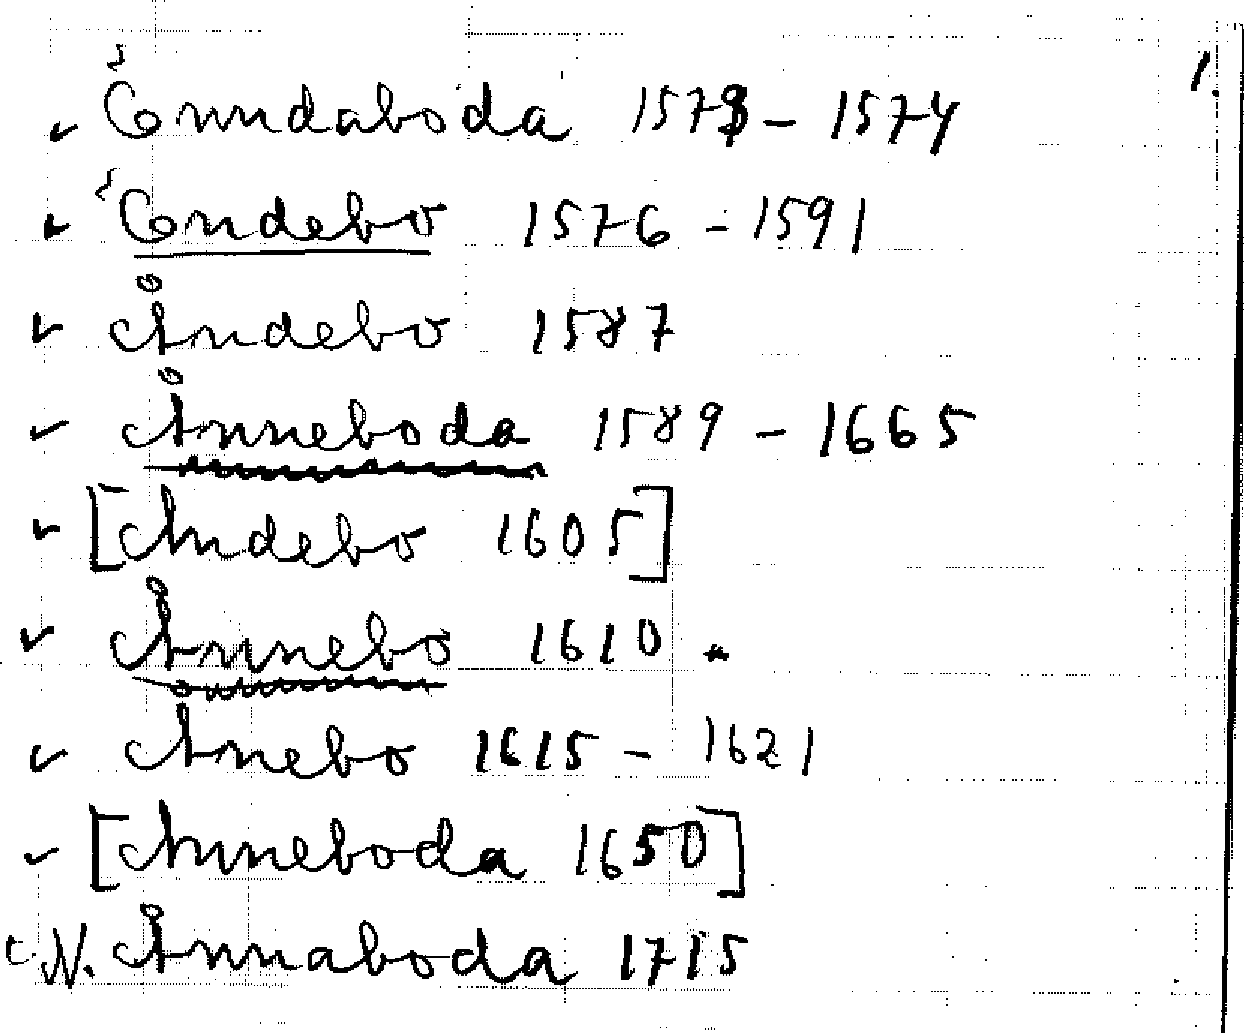 1.
✓ Önndaboda 1573 - 1574
✓ Öndebo 1576 - 1591
✓ Åndebo 1587
✓ Ånneboda 1589 - 1665
✓ [Andebo 1605]
✓ Ånnebo 1610
✓ Anebo 1615 - 1621
✓ [Anneboda 1650]
N. Ånnaboda 1715